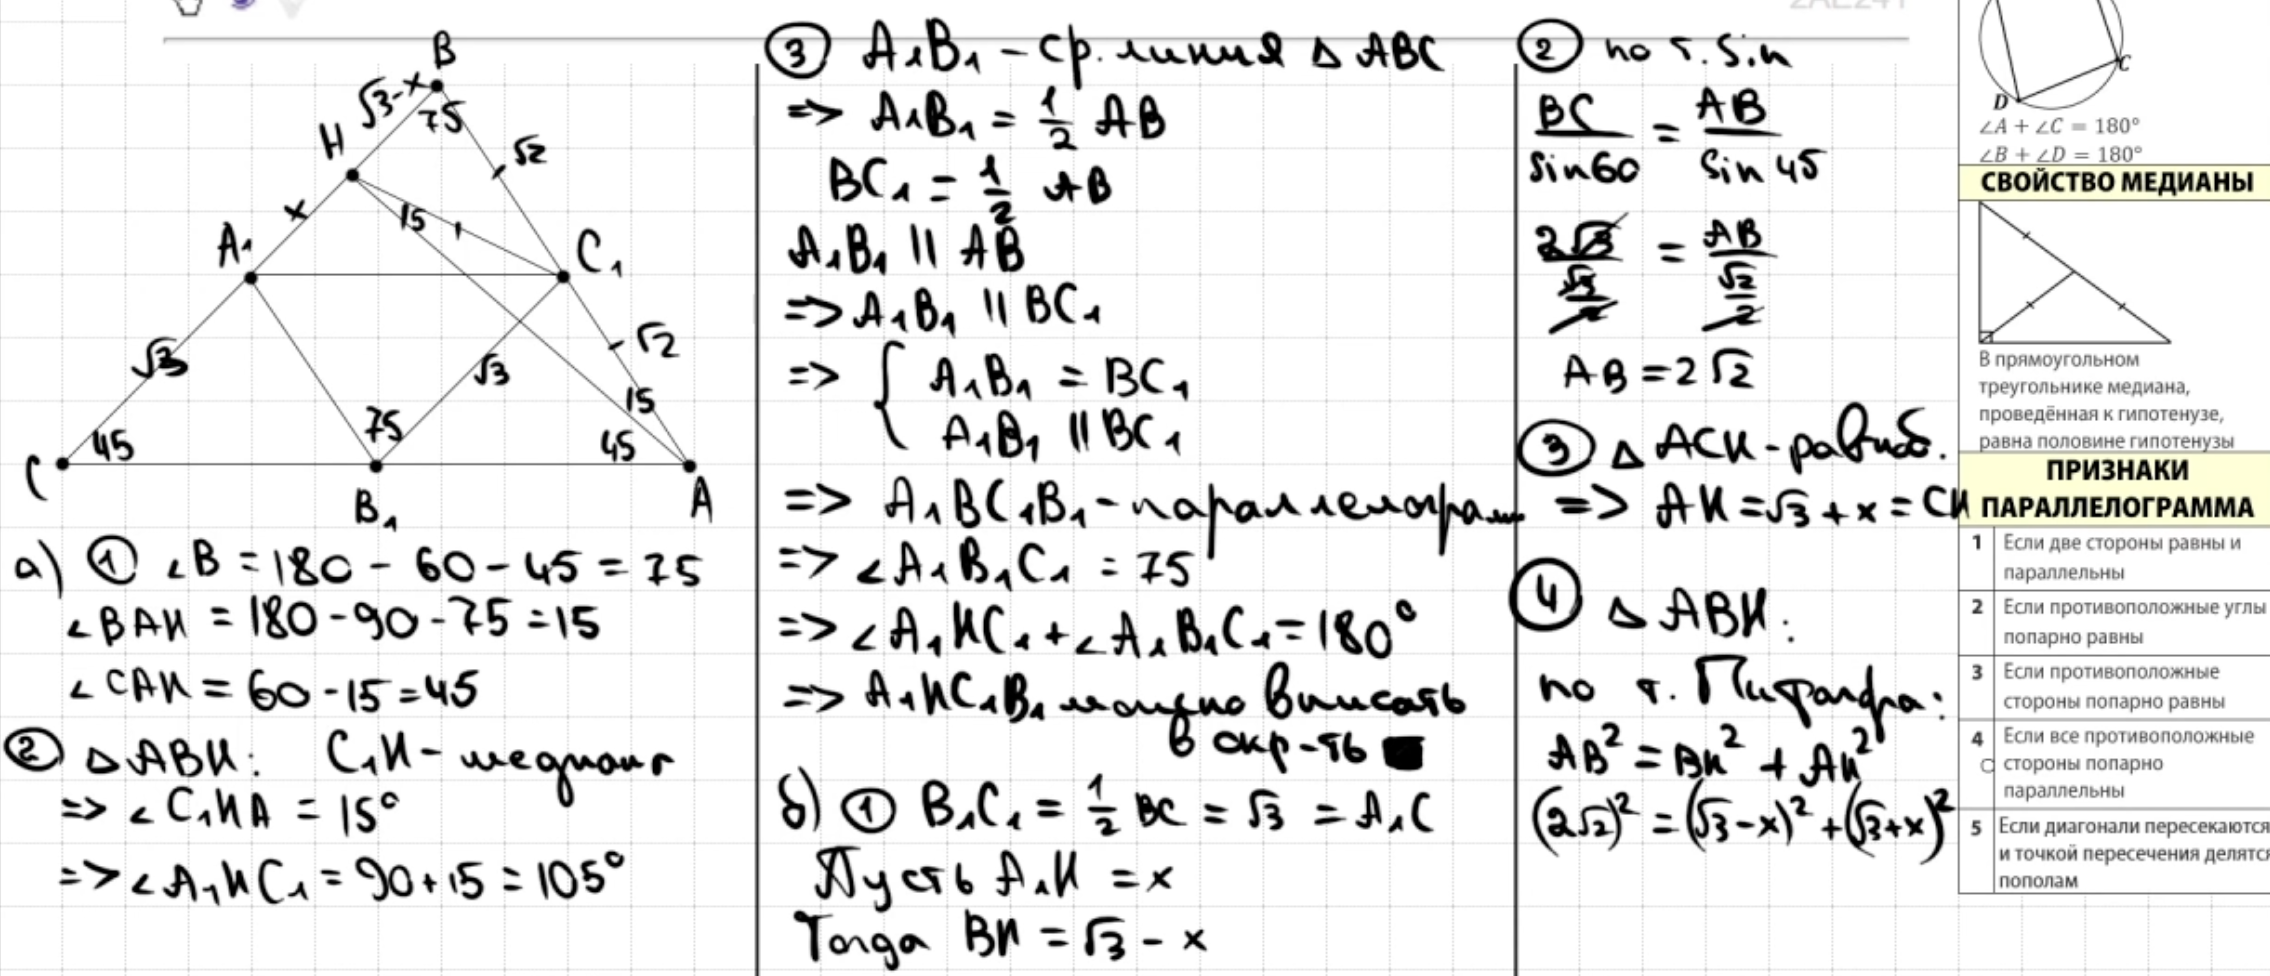 B
√3-x
75
H
√2
x
15
A₁
C₁
√3
√3
√2
75
15
45
45
C
B₁
A
а) ① ∠B = 180 - 60 - 45 = 75
∠BAH = 180-90-75=15
∠CAH = 60-15=45
② △ABH: C₁H - медиана
=> ∠C₁HA = 15°
=> ∠A₁HC₁ = 90+15 = 105°
③ A₁B₁ - ср. линия △ABC
=> A₁B₁ = 1/2 AB
BC₁ = 1/2 AB
A₁B₁ || AB
=> A₁B₁ || BC₁
=> { A₁B₁ = BC₁
A₁B₁ || BC₁
=> A₁BC₁B₁ - параллелограмм
=> ∠A₁B₁C₁ = 75
=> ∠A₁HC₁ + ∠A₁B₁C₁ = 180°
=> A₁HC₁B₁ можно вписать
в окр-ть ■
б) ① B₁C₁ = 1/2 BC = √3 = A₁C
Пусть A₁H = x
Тогда BH = √3 - x
② по т. Sin
BC/Sin60 = AB/Sin45
2√3/(√3/2) = AB/(√2/2)
AB = 2√2
③ △ACH - равноб.
=> AH = √3 + x = CH
④ △ABH:
по т. Пифагора:
AB² = BH² + AH²
(2√2)² = (√3-x)² + (√3+x)²
C
D
∠A + ∠C = 180°
∠B + ∠D = 180°
СВОЙСТВО МЕДИАНЫ
В прямоугольном
треугольнике медиана,
проведённая к гипотенузе,
равна половине гипотенузы
ПРИЗНАКИ
ПАРАЛЛЕЛОГРАММА
1 Если две стороны равны и
параллельны
2 Если противоположные углы
попарно равны
3 Если противоположные
стороны попарно равны
4 Если все противоположные
стороны попарно
параллельны
5 Если диагонали пересекаются
и точкой пересечения делятся
пополам